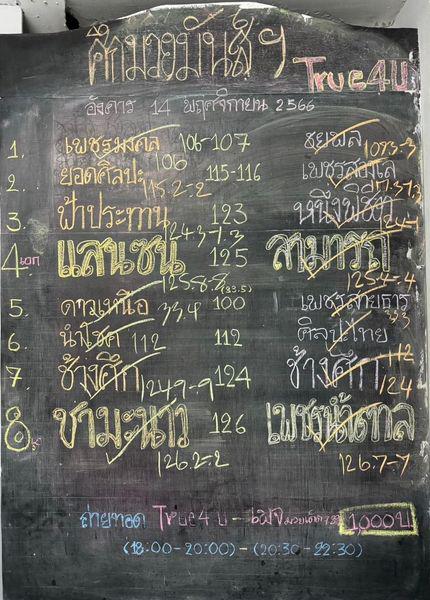 ศึกมวยมันส์ฯ
True4U
อังคาร 14 พฤศจิกายน 2566
1. เพชรมงคล 106-107 ชยพล
106 107.3-3
2. ยอดศิลปะ 115-116 เพชรสมใจ
115.2-2 117.3-13
3. ฟ้าประทาน 123 หนึ่งพิชิต
124.3-7.3
4 เอก แสนซน 125 สามารถ
125.8-8 (33.5) 125.4-4
5. ดาวเหนือ 33.4 100 เพชรสายธาร
33.3
6. นำโชค 112 112 ศิลปะไทย
112
7. ช้างศึก 124 ช้างศึก
124.9-9 124
8. ชามะนาว 126 เพชรน้ำตาล
126.2-2 126.7-7
ถ่ายทอด True4U - 1,000บ
(18:00-20:00) - (20:30-22:30)